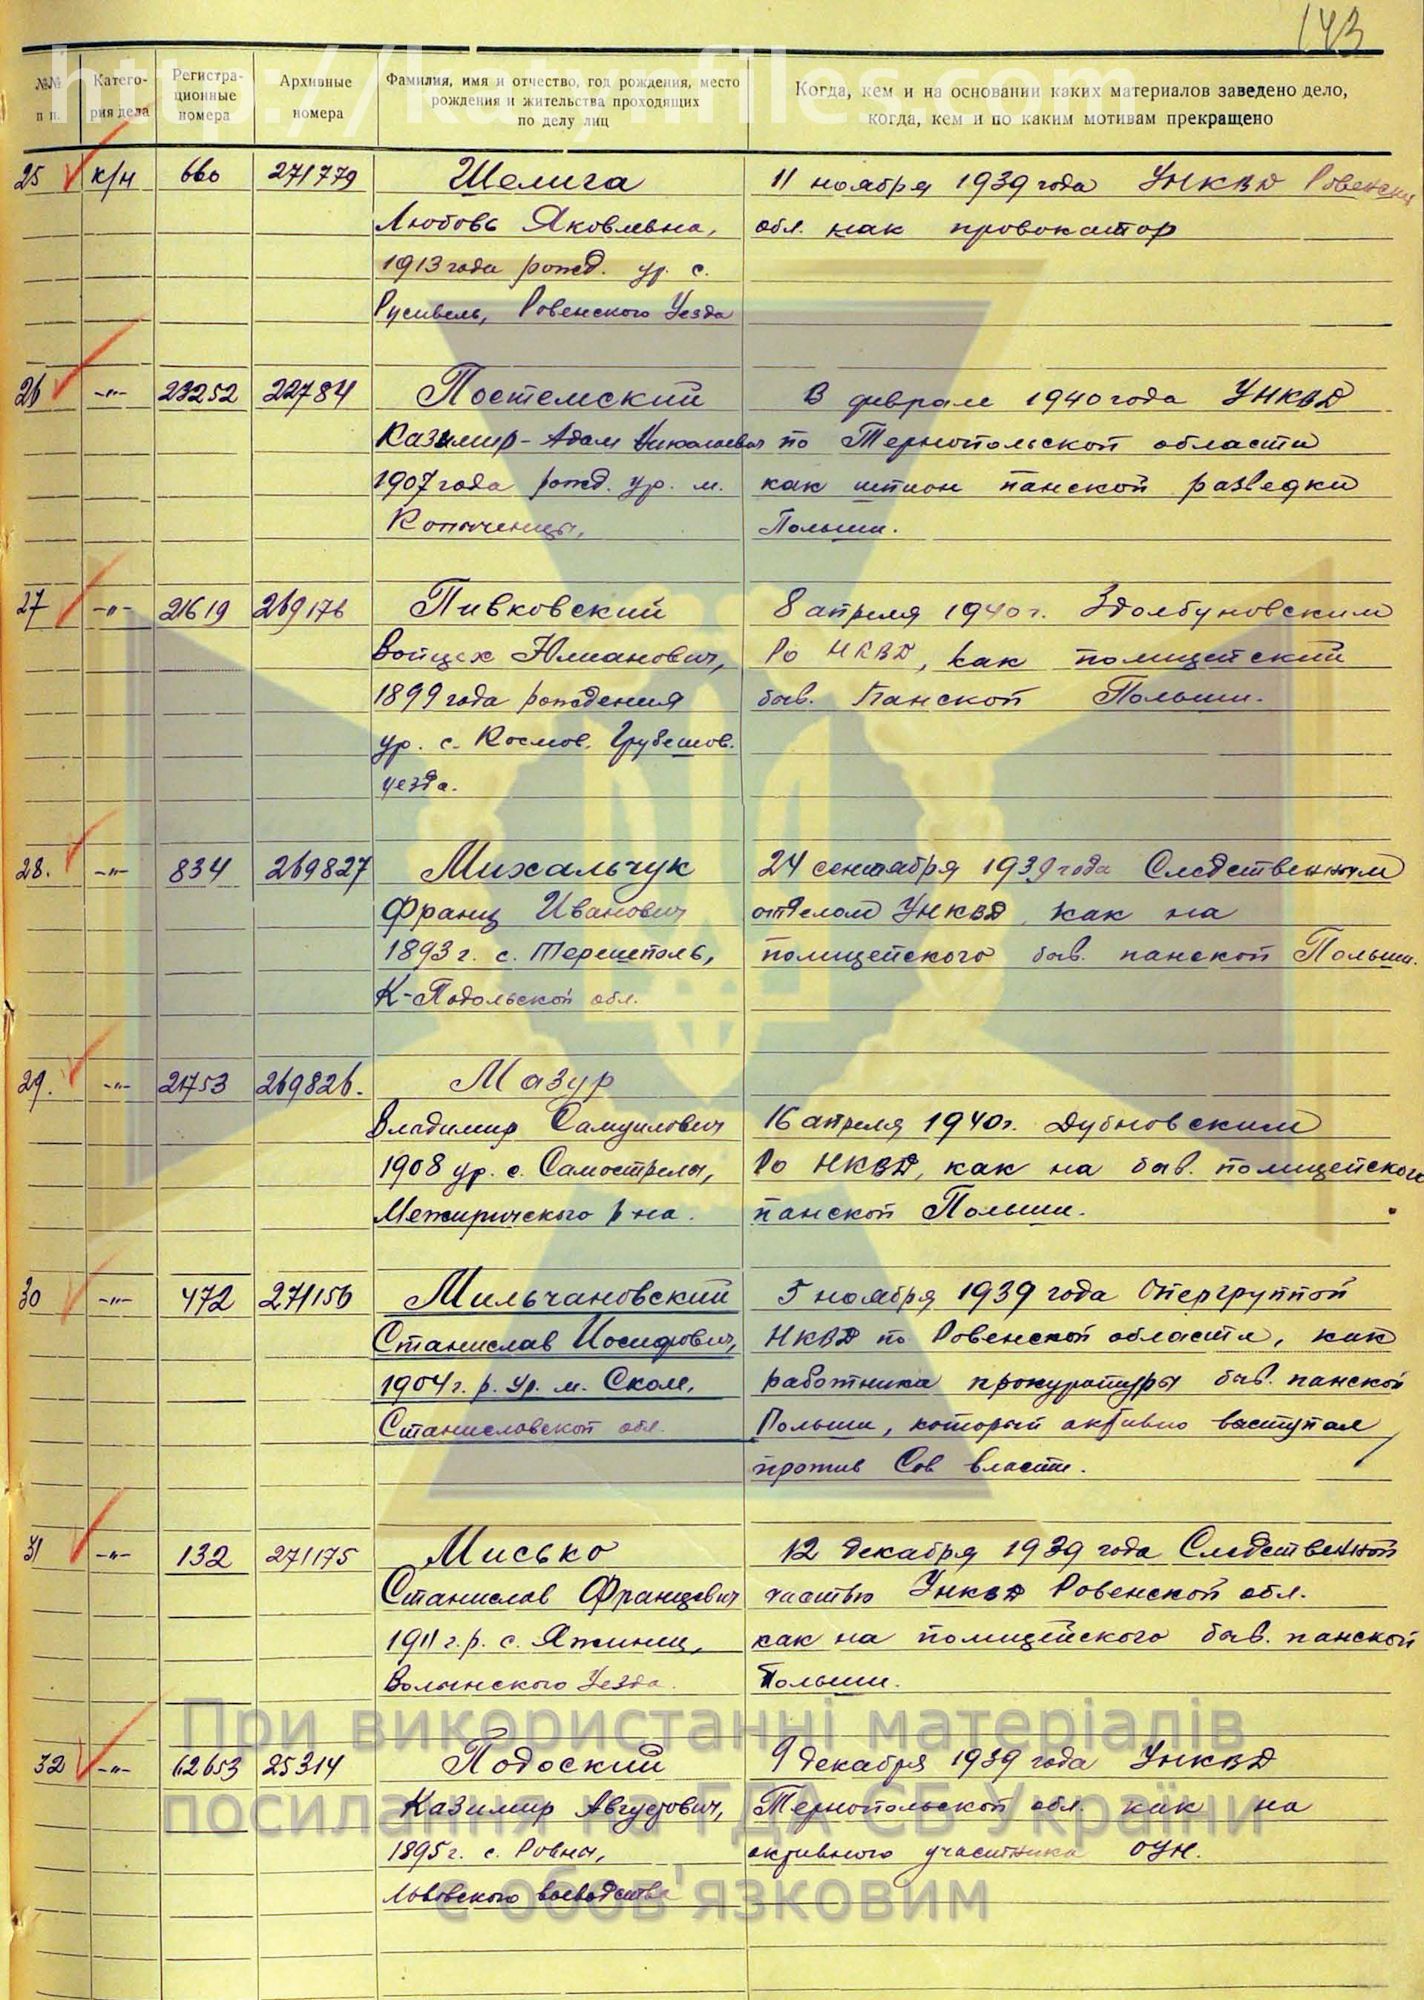 143
http://katynfiles.com
№№ п п.
Катего-
рия дела
Регистра-
ционные
номера
Архивные
номера
Фамилия, имя и отчество, год рождения, место
рождения и жительства проходящих
по делу лиц
Когда, кем и на основании каких материалов заведено дело,
когда, кем и по каким мотивам прекращено
25 к/н 660 271779 Шелига 11 ноября 1939 года УНКВД Ровенской
Любовь Яковлевна, обл. как провокатор
1913 года рожд. ур. с.
Русивель, Ровенского Уезда
26 -"- 23252 22784 Постемский В феврале 1940 года УНКВД
Казимир-Адам Николаевич по Тернопольской области
1907 года рожд. ур. м. как шпион панской разведки
Копыченцы, Польши.
27 -"- 21619 269176 Пивковский 8 апреля 1940 г. Здолбуновским
Войцех Юлианович, Ро НКВД, как полицейский
1899 года рождения быв. Панской Польши.
ур. с. Космов. Грубешов.
уезда.
28. -"- 834 269827 Михальчук 24 сентября 1939 года Следственным
Франц Иванович отделом УНКВД, как на
1893 г. с. Терешполь, полицейского быв. панской Польши.
К-Подольской обл.
29. -"- 21753 269826. Мазур
Владимир Самуилович 16 апреля 1940 г. Дубновским
1908 ур. с. Самострелы, Ро НКВД, как на быв. полицейского
Межиричского р-на. панской Польши.
30 -"- 472 271156 Мильчановский 5 ноября 1939 года Опергруппой
Станислав Иосифович, НКВД по Ровенской области, как
1904 г. р. ур. м. Сколе, работника прокуратуры быв. панской
Станиславской обл. Польши, который активно выступал
против Сов власти.
31 -"- 132 271175 Мисько 12 декабря 1939 года Следственной
Станислав Францевич частью УНКВД Ровенской обл.
1911 г. р. с. Яжинец, как на полицейского быв. панской
Волынского Уезда. Польши.
32 -"- 62653 25314 Подоский 9 декабря 1939 года УНКВД
Казимир Августович, Тернопольской обл. как на
1895 г. с. Ровны, активного участника ОУН.
Львовского воеводства
При використанні матеріалів
посилання на ГДА СБ України
є обов'язковим